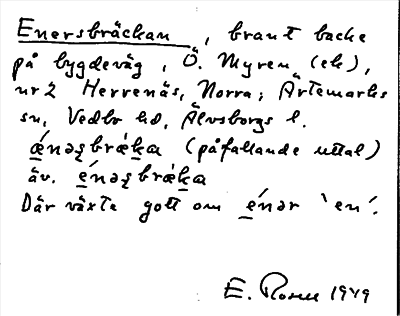 Enersbräckan, brant backe
på bygdeväg, Ö. Myren (ek),
nr 2 Herrenäs, Norra; Ärtemarks
sn, Vedbo hd, Älvsborgs l.
ǽnəʂbrǽka (påfallande uttal)
äv. énəʂbrǽka
Där växte gott om énər 'en'.
E. 1949